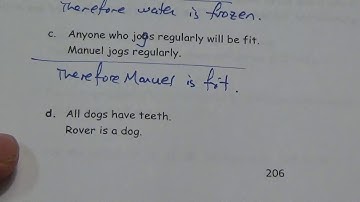 Therefore water is frozen.
c. Anyone who jogs regularly will be fit.
Manuel jogs regularly.
Therefore Manuel is fit.
d. All dogs have teeth.
Rover is a dog.
206